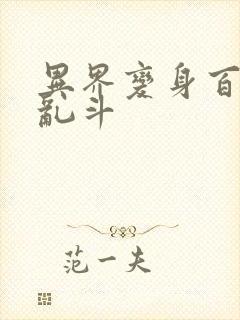 異界變身百
亂斗
范一夫